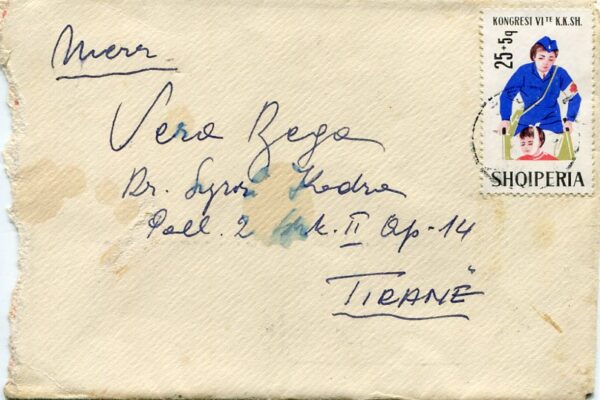 Merr
Vera Bega
Rr. Kodra
Pall. 2 Shk. II Ap-14
TIRANË
KONGRESI VI TE K.K.SH.
25+5q
SHQIPERIA